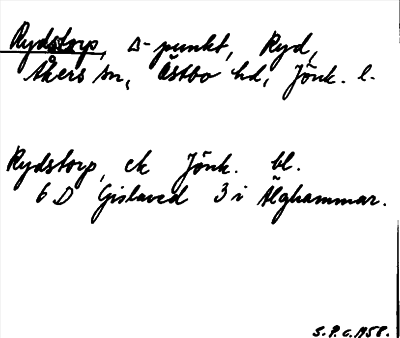 Rydstorp, △-punkt, Ryd,
Åkers sn, Östbo hd, Jönk. l.
Rydstorp, ek Jönk. bl.
6 D Gislaved 3 i Älghammar.
S.P.C. 1958.